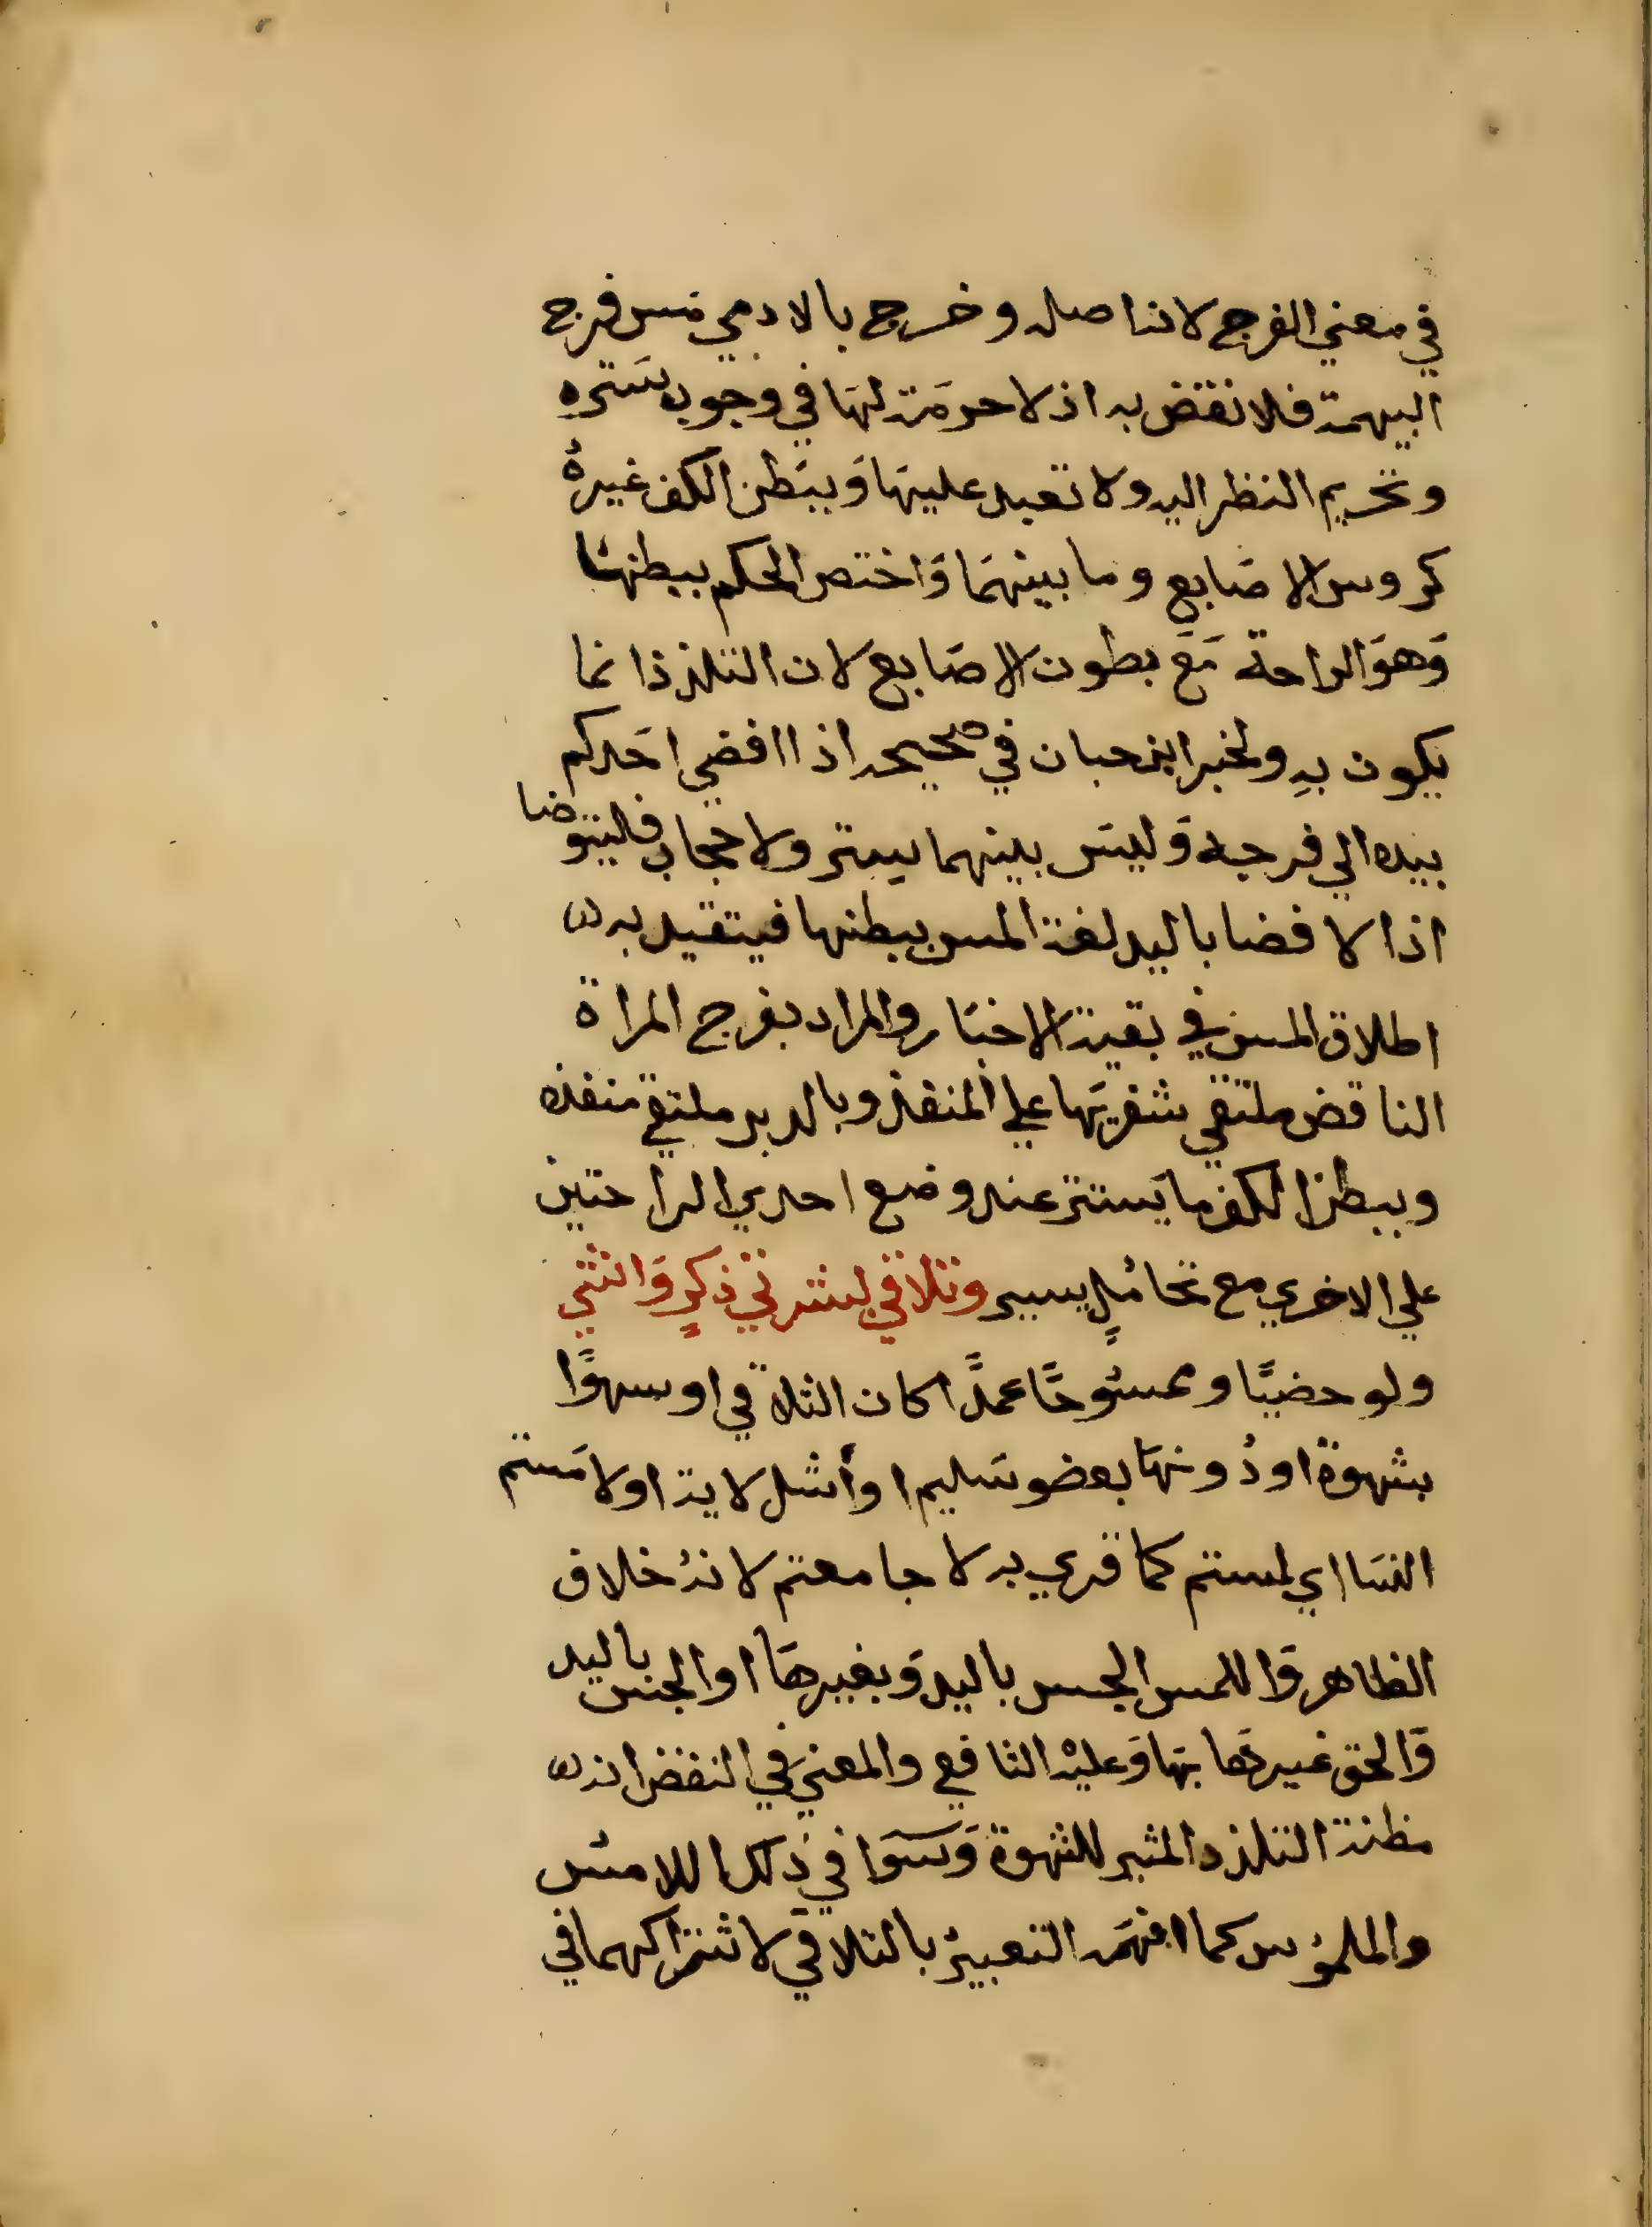 في معني الفرج لانه اصله وخرج بالادمي مَس فرج
البهيمة فلا نقض به اذ لا حرمَة لهَا في وجوب سَتره
وتحريم النظر اليه ولا تعبد عليهَا وَببَطن الكف غيرهُ
كروس الاصَابع وما بينهمَا وَاختص الحكم ببطنهَا
وَهوَ الراحة مَعَ بطون الاصَابع لان التلذذ انما
يكون بهِ ولخبر ابن حبان في صحيحه اذا افضي احَدكم
بيده الي فرجه وَليسَ بينهما ستر ولا حجاب فليتوضا
اذ الافضا باليد لغة المس ببطنها فيتقيد به
اطلاق المس في بقية الاخبَار والمراد بفرج المراة
الناقض ملتقي شفريهَا علي المنفذ وبالدبر ملتقي منفذه
وببطن الكف ما يَستتر عند وضع احدي الراحتين
علي الاخري مع تحامُلٍ يسير وتلاقي بشرتي ذكرٍ وَانثي
ولو خصيًّا وممسُوحًا عمدًا كان التلاقي او سهوًا
بشهوة او دُونهَا بعضو سَليم او أشل لاية اولامَستم
النسَا اي لمستم كما قري به لا جامعتم لانهُ خلاف
الظاهر وَاللمس الجس باليد وَبغيرهَا او الجس باليد
وَالحق غيرهَا بهَا وَعليْه الشافعي والمعنيَ في النقض انه
مظنة التلذذ المثير للشهوة وَسَوَا في ذلك اللامسُ
والملموس كما افهمَه التعبيرُ بالتلاقي لاشتراكهما في